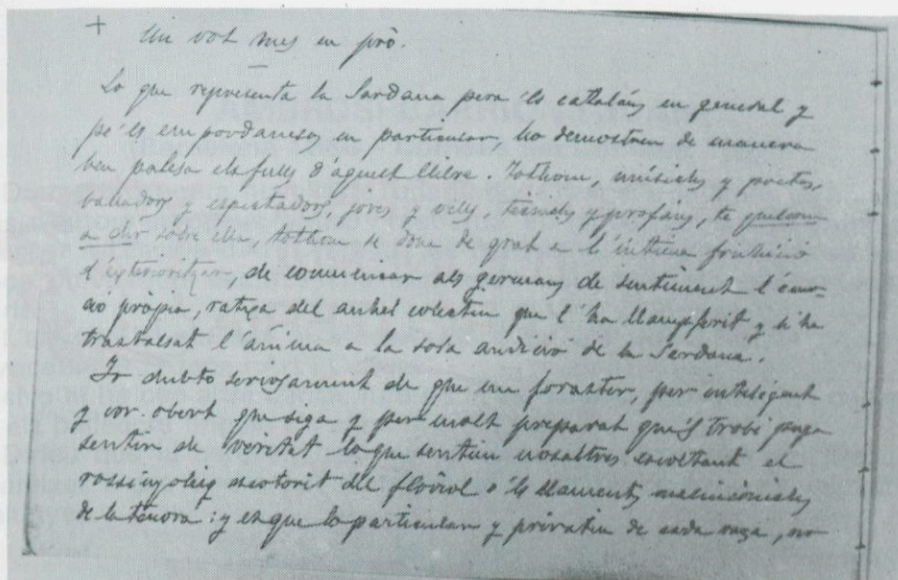 +
Un vot mes en prò.
Lo que representa la Sardana pera 'ls cathaláns en general y
pe 'ls empordanesos en particular, ho demostren de manera
ben palesa els fulls d'aquest llibre. Tothom, músichs y poetes,
balladors y espectadors, joves y vells, tècnichs y profáns, te quelcom
a dir sobre ella, tothom se dona de grat a l'íntima fruhició
d'exterioritzar, de comunicar als germans de sentiment l'emo-
ció pròpia, ratxa del anhel colectiu que l'ha llampferit y li ha
trastalsat l'ànima a la sola audició de la Sardana.
Jo dubto seriosament de que un foraster, per inteligent
y cor-obert que siga y per molt preparat que's trobi puga
sentir de veritat lo que sentim nosaltres escoltant el
rossinyoleig esvotorit del flòviol o 'ls llaments malincònichs
de la tenora: y es que lo particular y privatiu de cada raça, no